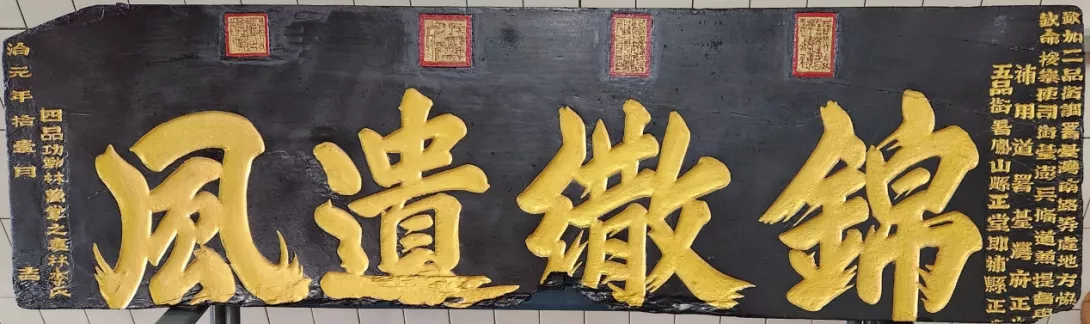 欽加二品銜調署臺灣南路等處地方協
欽命按察使司銜臺澎兵備道兼提督學
補用道署臺灣府正
五品銜署鳳山縣正堂即補縣正
錦繖遺風
四品功勳林萬掌之妻林李氏
治元年拾壹月 吉